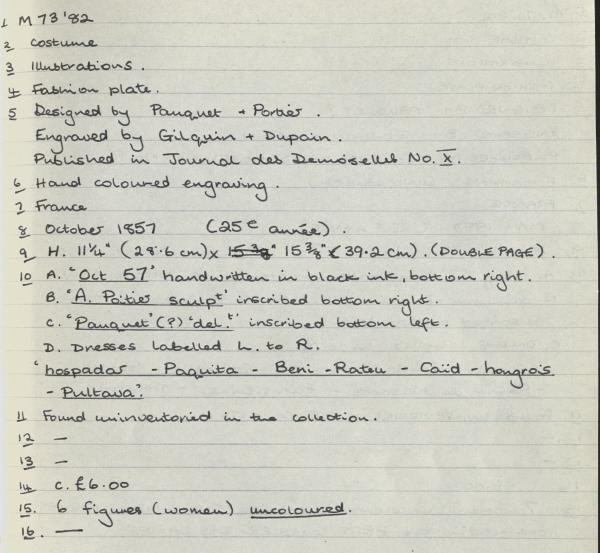 1 M 73 '82
2 Costume
3 Illustrations.
4 Fashion plate.
5 Designed by Pauquet + Portier.
Engraved by Gilquin + Dupain.
Published in Journal des Demoiselles No. X.
6 Hand coloured engraving.
7 France
8 October 1857 (25e année).
9 H. 11¼" (28.6 cm) x 15⅜" 15⅜" (39.2 cm). (DOUBLE PAGE).
10 A. "Oct 57" handwritten in black ink, bottom right.
B. "A. Poitier sculpt" inscribed bottom right.
C. "Pauquet" (?) "del.t" inscribed bottom left.
D. Dresses labelled L. to R.
"hospadar - Paquita - Beni - Ratsu - Caïd - hongrois
- Pultava".
11 Found uninventoried in the collection.
12 —
13 —
14 c. £6.00
15. 6 figures (women) uncoloured.
16. —